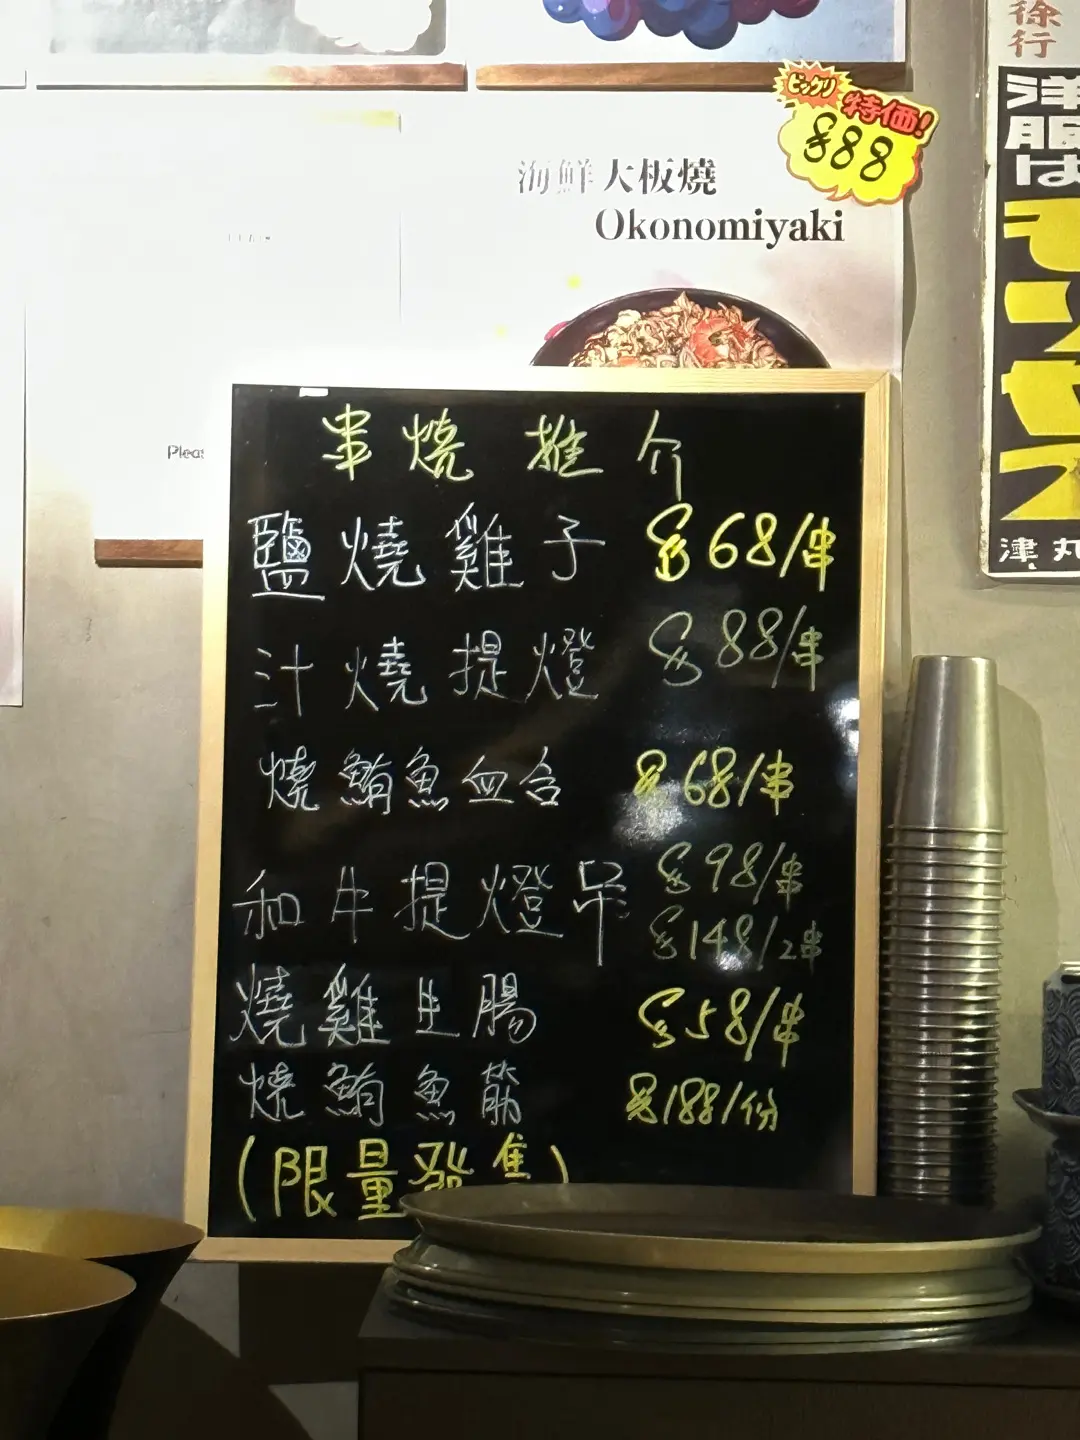 徐行
洋服は
津丸
ビックリ
特価!
$88
海鮮大板燒
Okonomiyaki
Pleas
串燒推介
鹽燒雞子 $68/串
汁燒提燈 $88/串
燒鮪魚血合 $68/串
和牛提燈吊 $98/串
$148/2串
燒雞生腸 $58/串
燒鮪魚筋 $188/份
(限量發售)